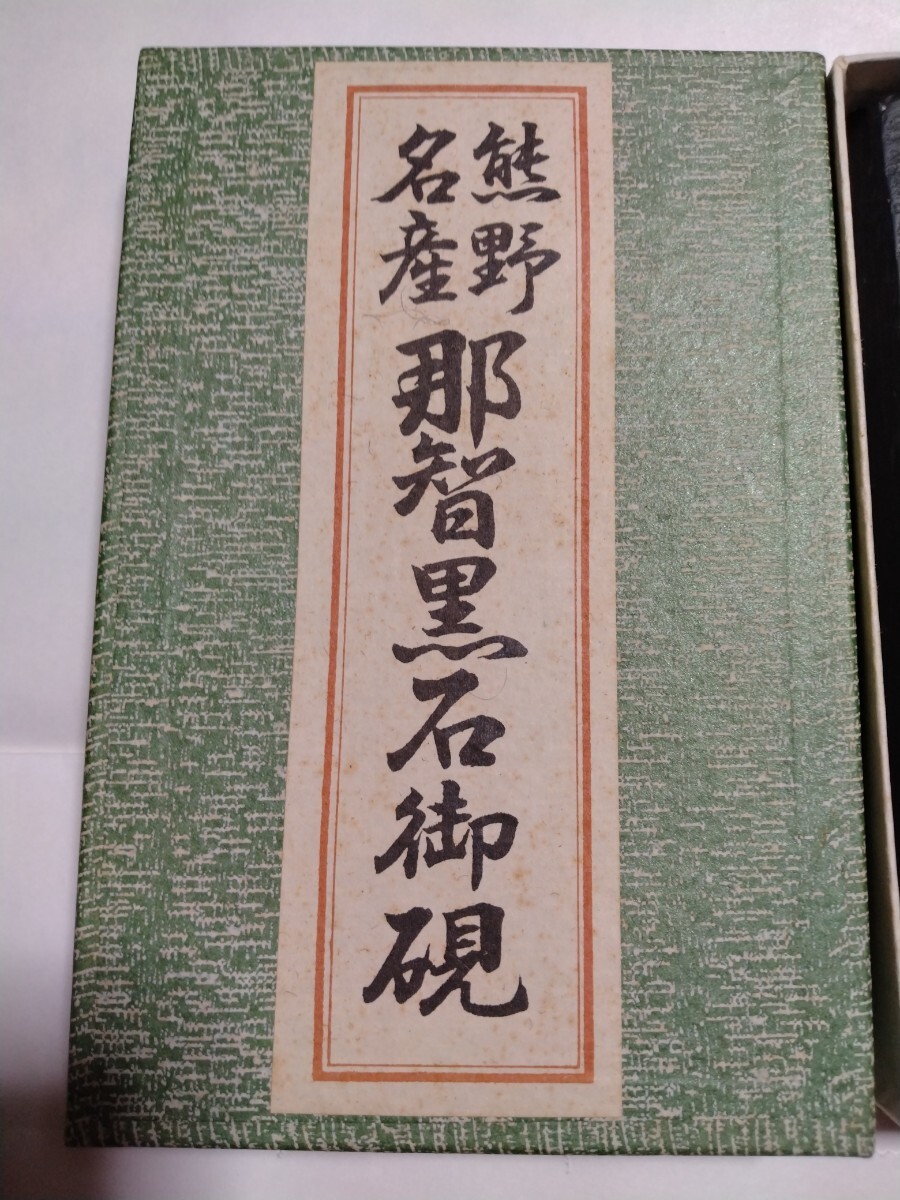 熊野
名産
那智黒石御硯